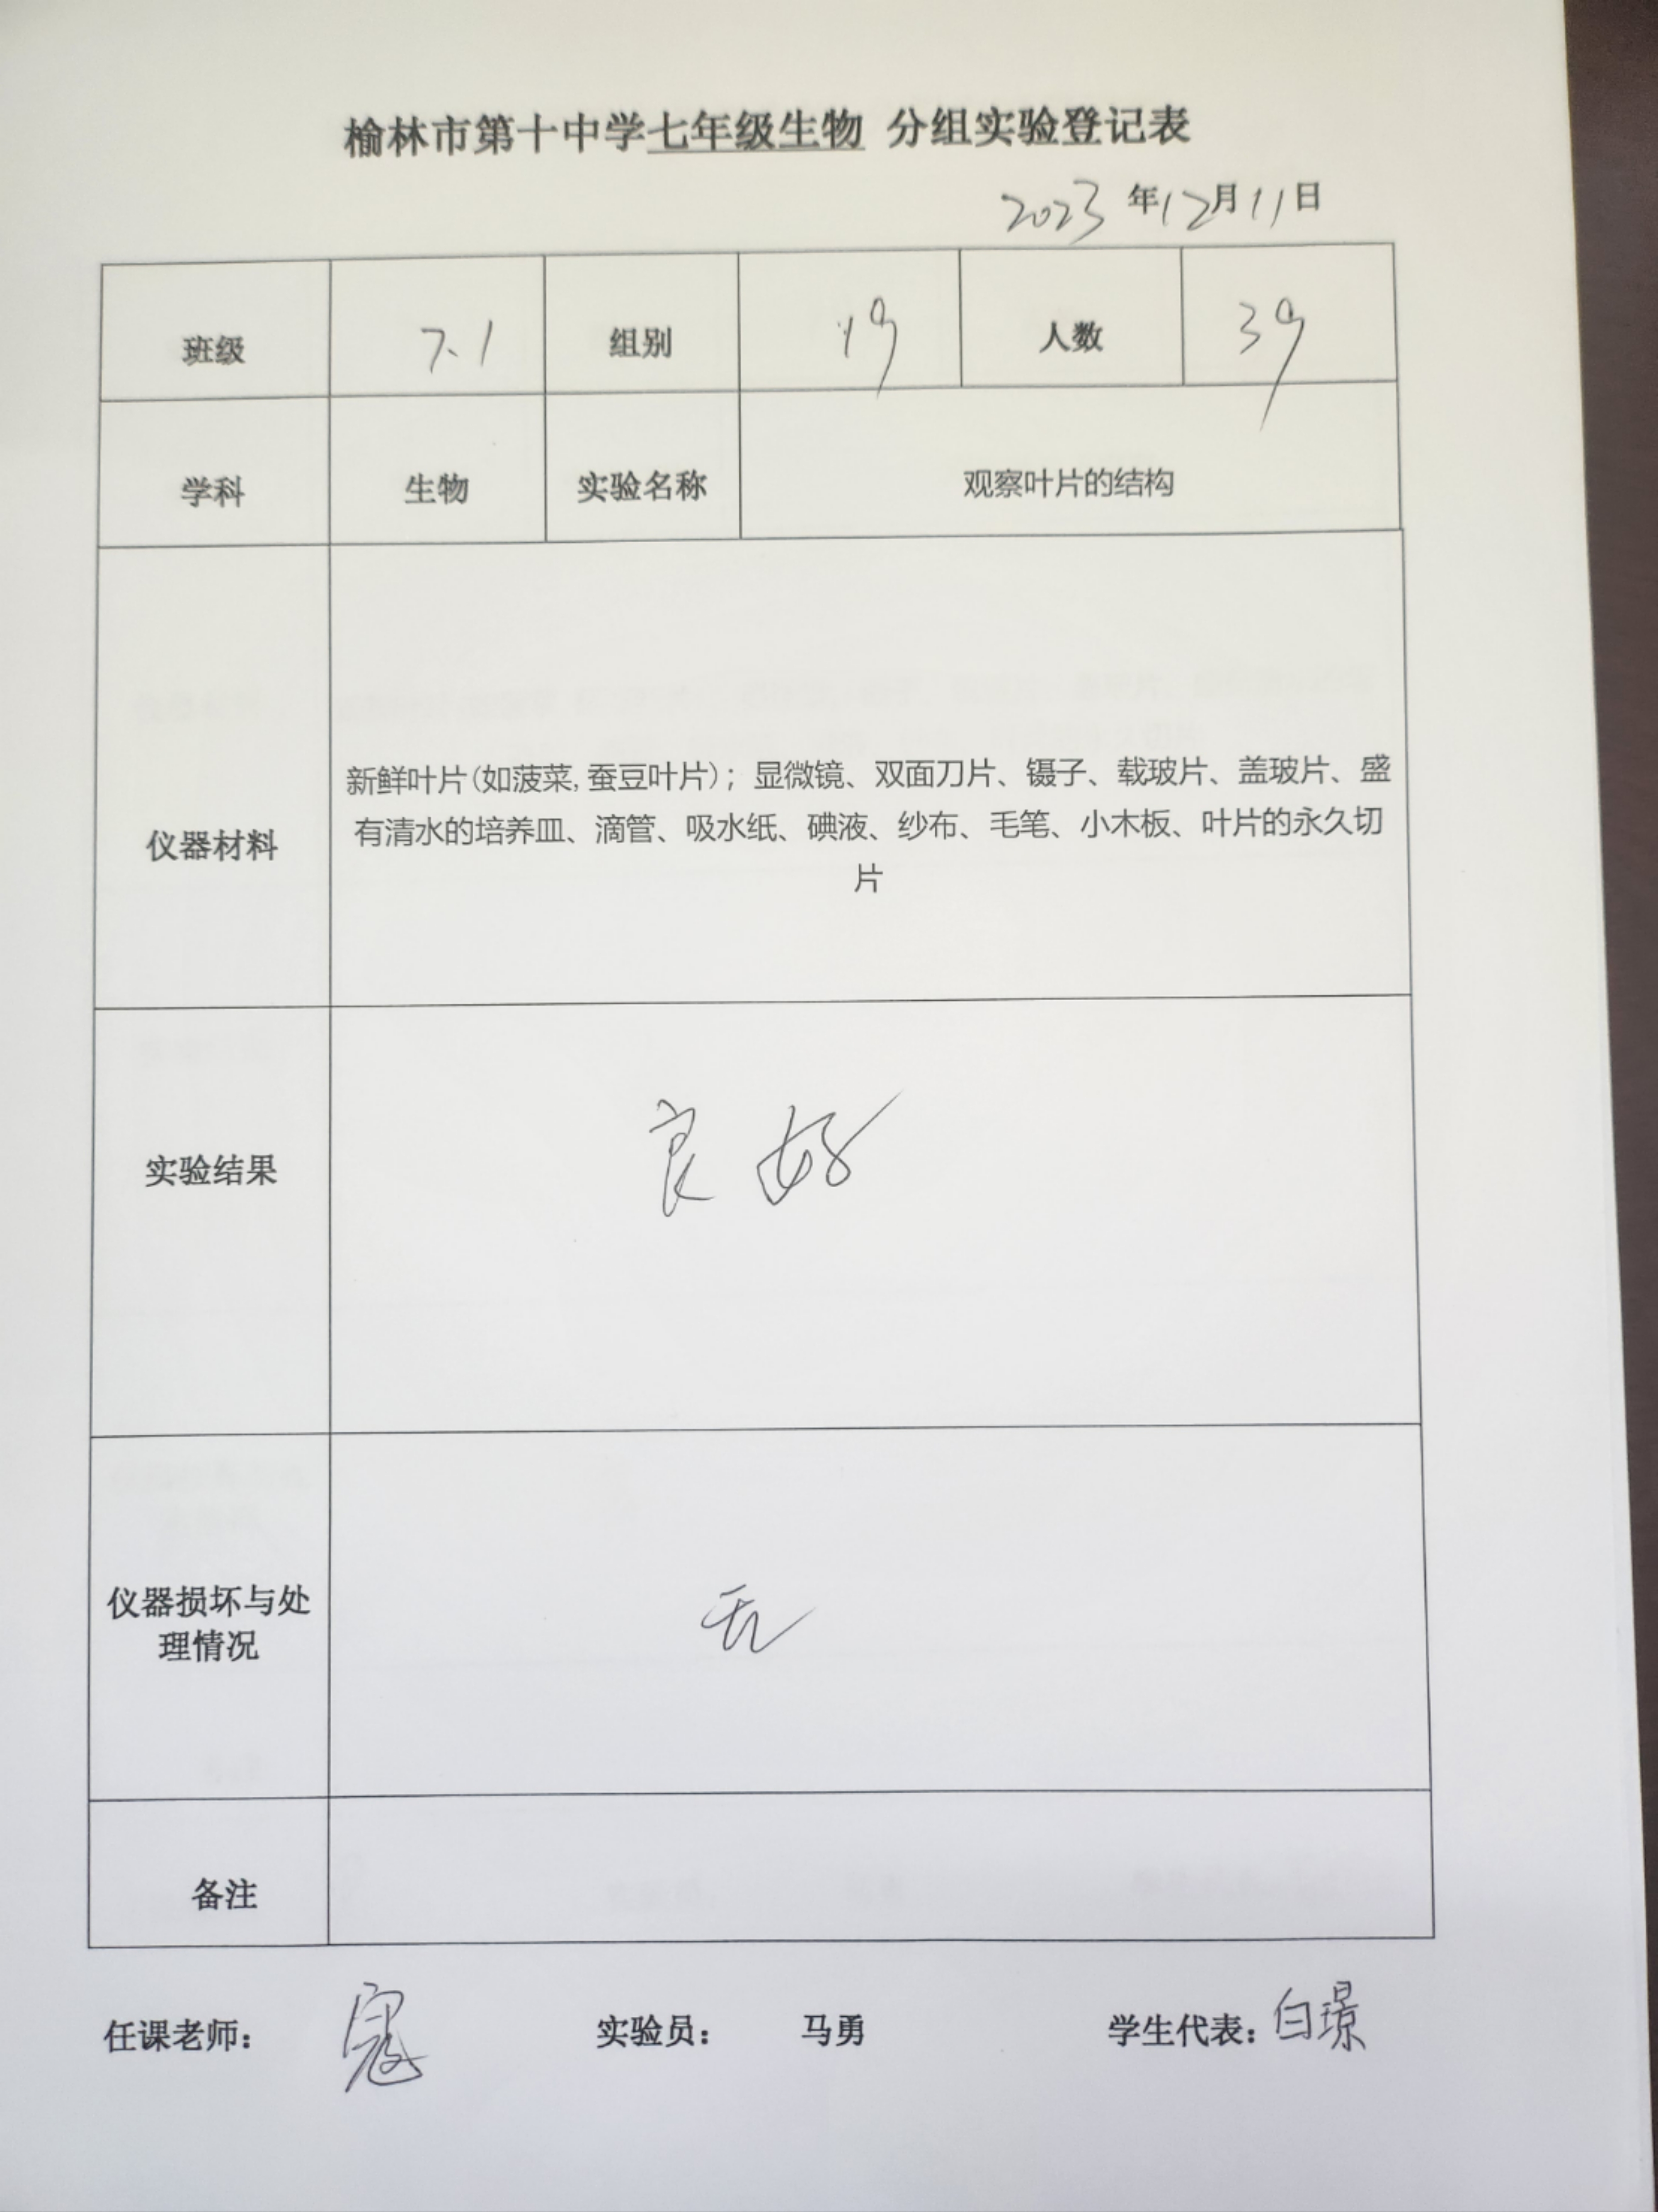 榆林市第十中学七年级生物 分组实验登记表
2023 年12月11日
班级 7.1 组别 19 人数 39
学科 生物 实验名称 观察叶片的结构
新鲜叶片(如菠菜,蚕豆叶片);显微镜、双面刀片、镊子、载玻片、盖玻片、盛
仪器材料 有清水的培养皿、滴管、吸水纸、碘液、纱布、毛笔、小木板、叶片的永久切
片
实验结果 良好
仪器损坏与处
理情况
无
备注
任课老师: 实验员: 马勇 学生代表:白璟